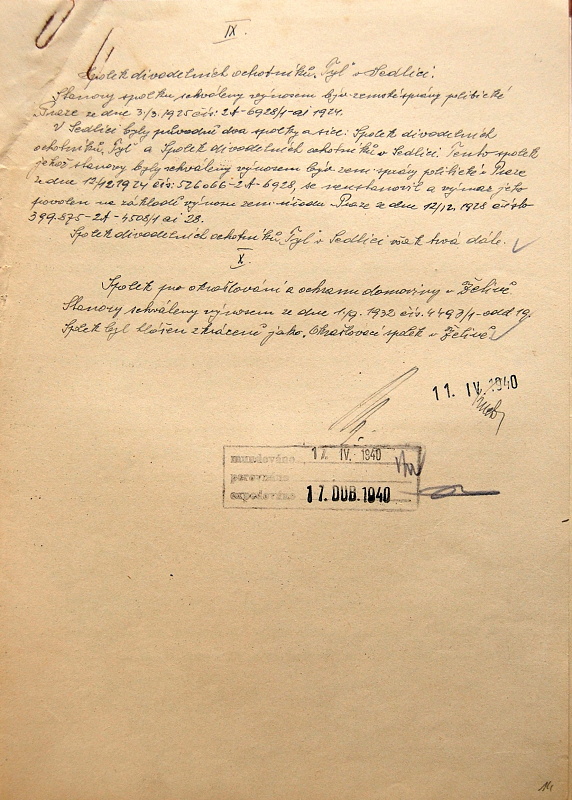 IX.
Spolek divadelních ochotníků „Tyl“ v Sedlici.
Stanovy spolku schváleny výnosem býv. zemské správy politické
v Praze ze dne 3/3. 1925 čís: 2A-6928/1-ai 1924.
V Sedlici byly původně dva spolky a sice: Spolek divadelních
ochotníků „Tyl“ a Spolek divadelních ochotníků v Sedlici. Tento spolek
jehož stanovy byly schváleny výnosem býv. zem. správy politické v Praze
ze dne 12/12 1924 čís: 526066-2A-6928, se neustanovil a výmaz jeho
povolen na základě výnosu zem. úřadu v Praze ze dne 12/12. 1928
399.875-2A-4508/1 ai 28.
Spolek divadelních ochotníků „Tyl“ v Sedlici však trvá dále.
X.
Spolek pro okrašlování a ochranu domoviny v Želivě
Stanovy schváleny výnosem ze dne 1/9. 1932 čís. 4493/1-odd 19
Spolek byl hlášen zkráceně jako „Okrašlovací spolek v Želivě“
11. IV. 1940
mundováno 17. IV. 1940
porovnáno
expedováno 17. DUB. 1940
14